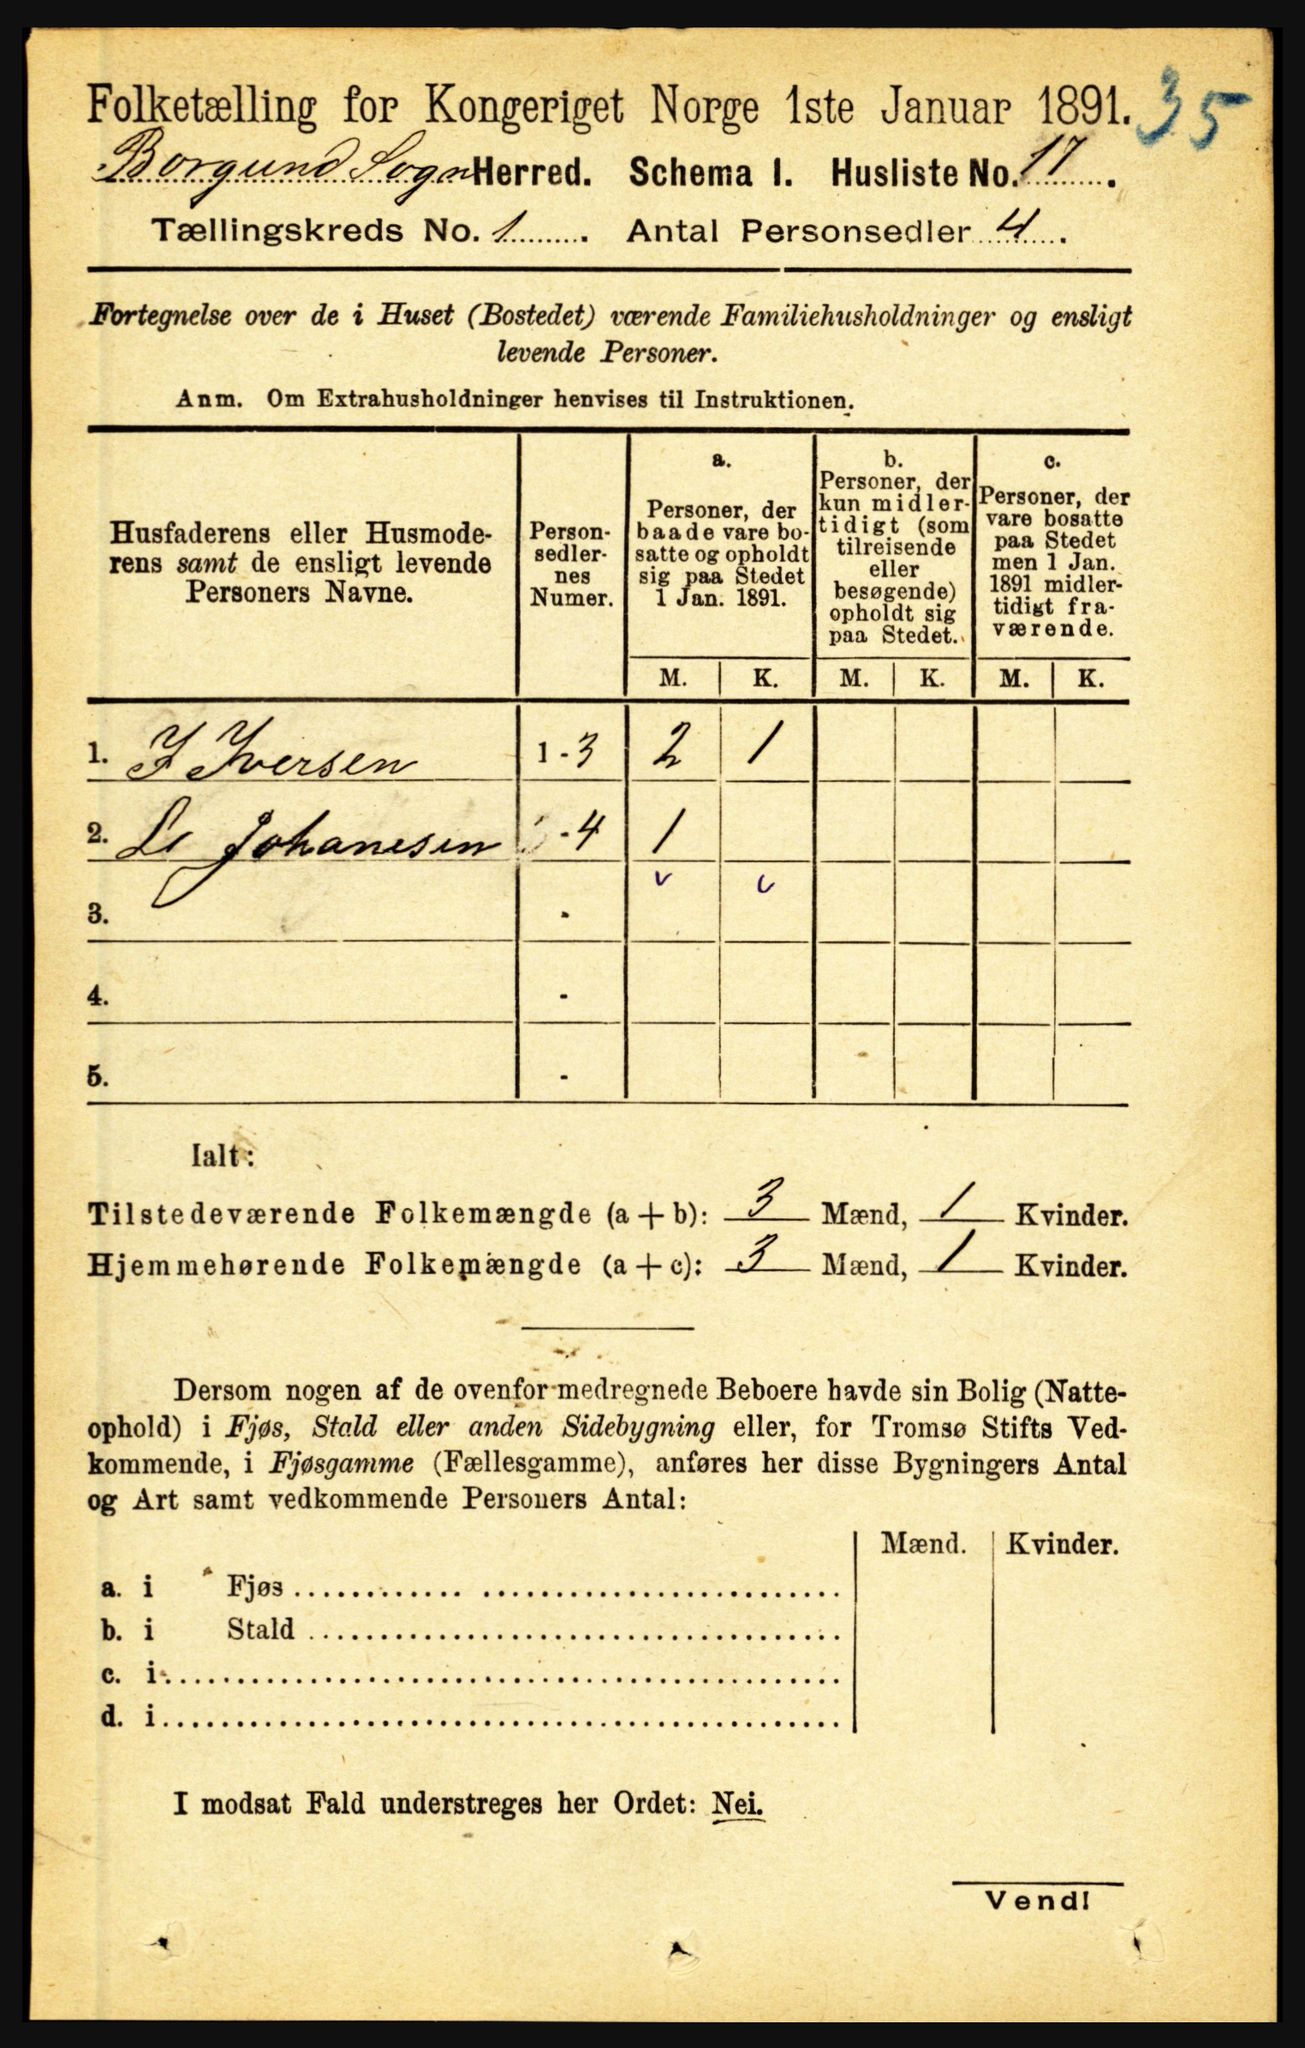 Folketælling for Kongeriget Norge 1ste Januar 1891.
35
Borgund Sogn Herred. Schema I. Husliste No. 17.
Tællingskreds No. 1. Antal Personsedler 4.
Fortegnelse over de i Huset (Bostedet) værende Familiehusholdninger og ensligt
levende Personer.
Anm. Om Extrahusholdninger henvises til Instruktionen.
Husfaderens eller Husmode-
rens samt de ensligt levende
Personers Navne.
Person-
sedler-
nes
Numer.
a.
Personer, der
baade vare bo-
satte og opholdt
sig paa Stedet
1 Jan. 1891.
b.
Personer, der
kun midler-
tidigt (som
tilreisende
eller
besøgende)
opholdt sig
paa Stedet.
c.
Personer, der
vare bosatte
paa Stedet
men 1 Jan.
1891 midler-
tidigt fra-
værende.
M. K. M. K. M. K.
1. I Iversen 1-3 2 1
2. Johanesen -4 1
3. -
4. -
5. -
Ialt:
Tilstedeværende Folkemængde (a+b): 3 Mænd, 1 Kvinder.
Hjemmehørende Folkemængde (a+c): 3 Mænd, 1 Kvinder.
Dersom nogen af de ovenfor medregnede Beboere havde sin Bolig (Natte-
ophold) i Fjøs, Stald eller anden Sidebygning eller, for Tromsø Stifts Ved-
kommende, i Fjøsgamme (Fællesgamme), anføres her disse Bygningers Antal
og Art samt vedkommende Personers Antal:
Mænd. Kvinder.
a. i Fjøs
b. i Stald
c. i
d. i
I modsat Fald understreges her Ordet: Nei.
Vend!